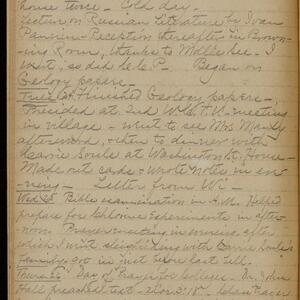 house twice — Cold day.
Lecture on Russian Literature by Ivan
Panin — Reception thereafter in Brown-
ing Room, thanks to Mlle See. I
went; so did L. P. — Began on
Geology papers —
Tues Finished Geology papers —
Presided at 2nd W.C.T.U. meeting
in village — went to see Mrs
afterward, & then to dinner with
Carrie Soule at Washington St. House —
Made out cards & wrote notes in
— Letter from
Wed Bible examination in A.M. Helped
prepare for Chlorine Experiments in after-
noon. Prayer meeting in evening after
which I went sleighing with Carrie Soule's
family; got in just before last bell.
Thurs Day of Prayer for Colleges — Dr. John
Hall preached, text